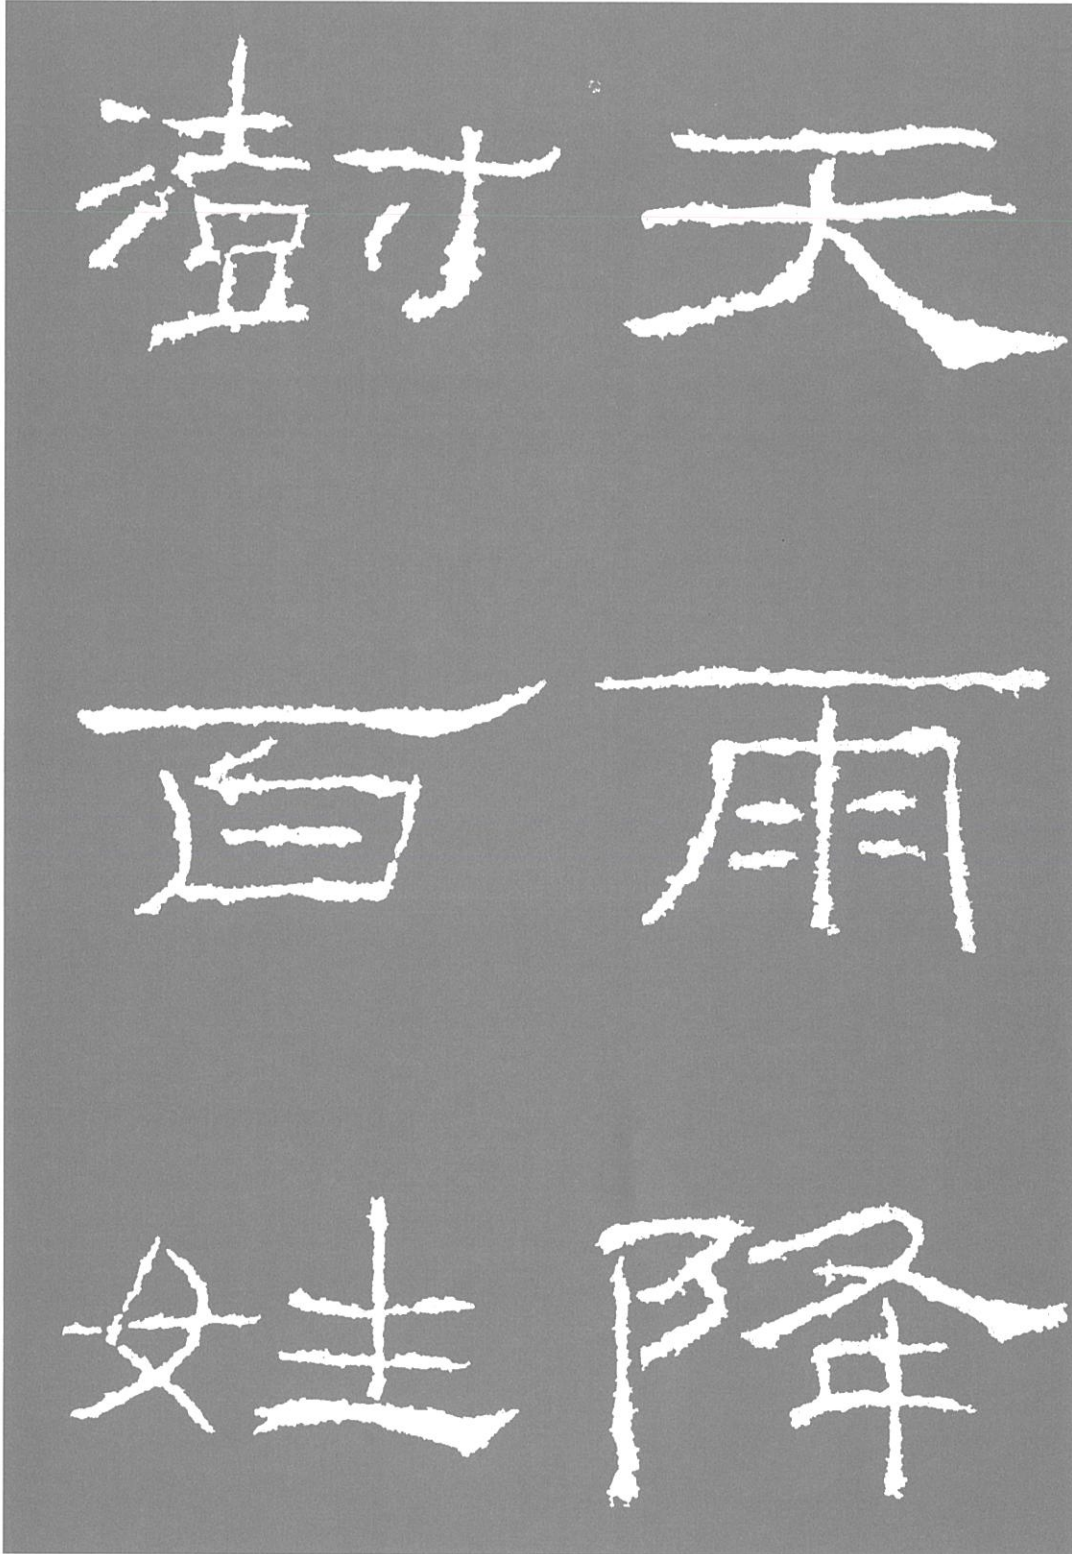 天雨降
澍百姓